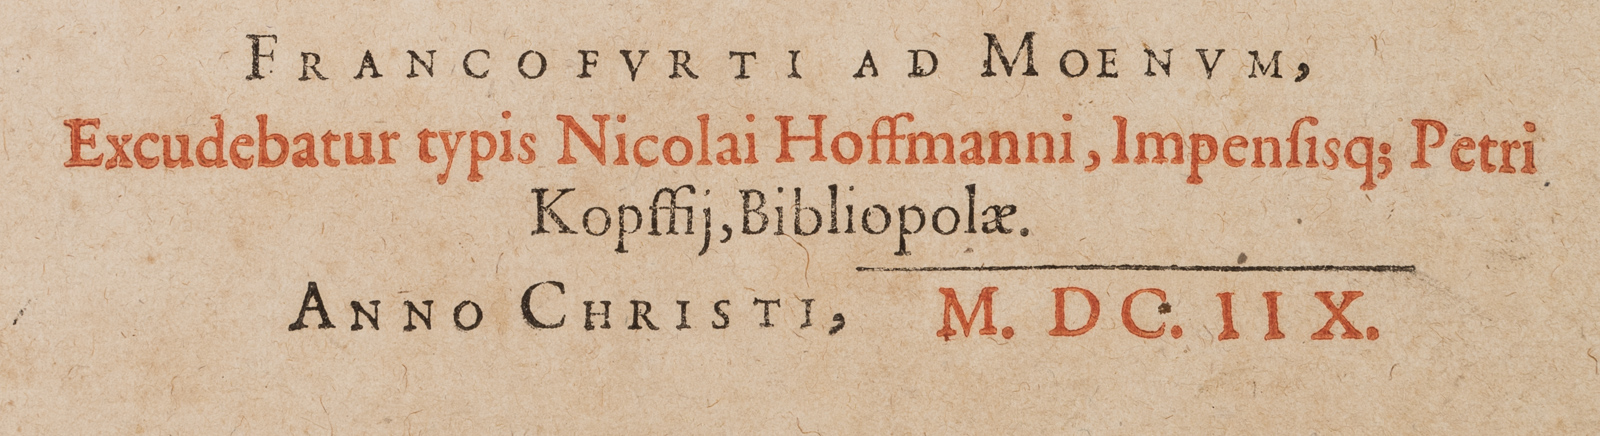 FRANCOFVRTI AD MOENVM,
Excudebatur typis Nicolai Hoffmanni, Impenſisq; Petri
Kopffij, Bibliopolæ.
ANNO CHRISTI, M. DC. IIX.